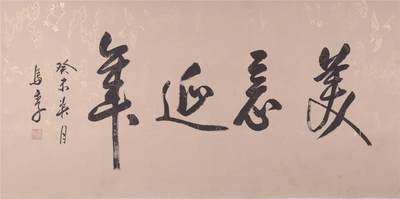 美意延年
癸未月